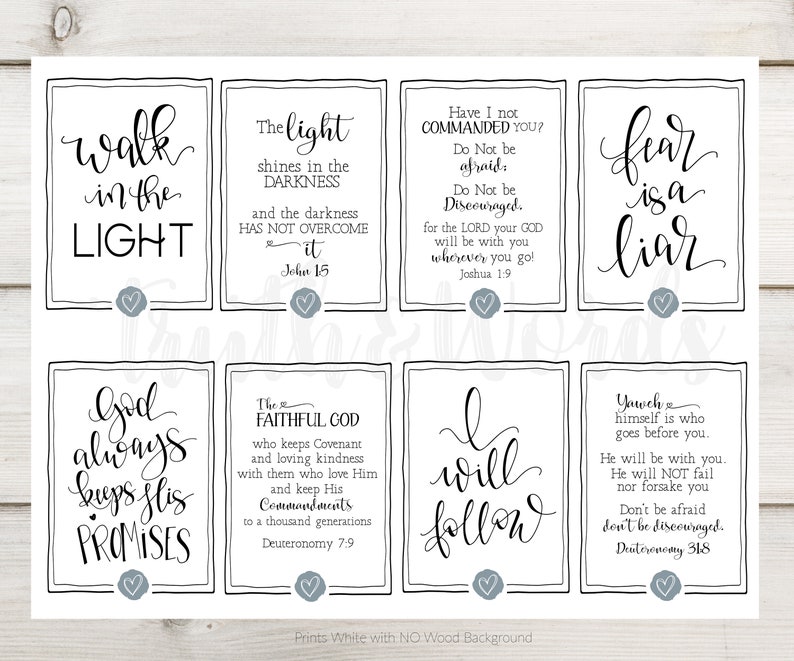 walk
in the
LIGHT
The light
shines in the
DARKNESS
and the darkness
HAS NOT OVERCOME
it
John 1:5
Have I not
COMMANDED YOU?
Do Not be
afraid;
Do Not be
Discouraged,
for the LORD your GOD
will be with you
wherever you go!
Joshua 1:9
fear
is a
liar
God
always
keeps His
PROMISES
The
FAITHFUL GOD
who keeps Covenant
and loving kindness
with them who love Him
and keep His
Commandments
to a thousand generations
Deuteronomy 7:9
I
will
follow
Yaweh
himself is who
goes before you.
He will be with you.
He will NOT fail
nor forsake you
Don't be afraid
don't be discouraged.
Deuteronomy 31:8
Truth & Words
Prints White with NO Wood Background